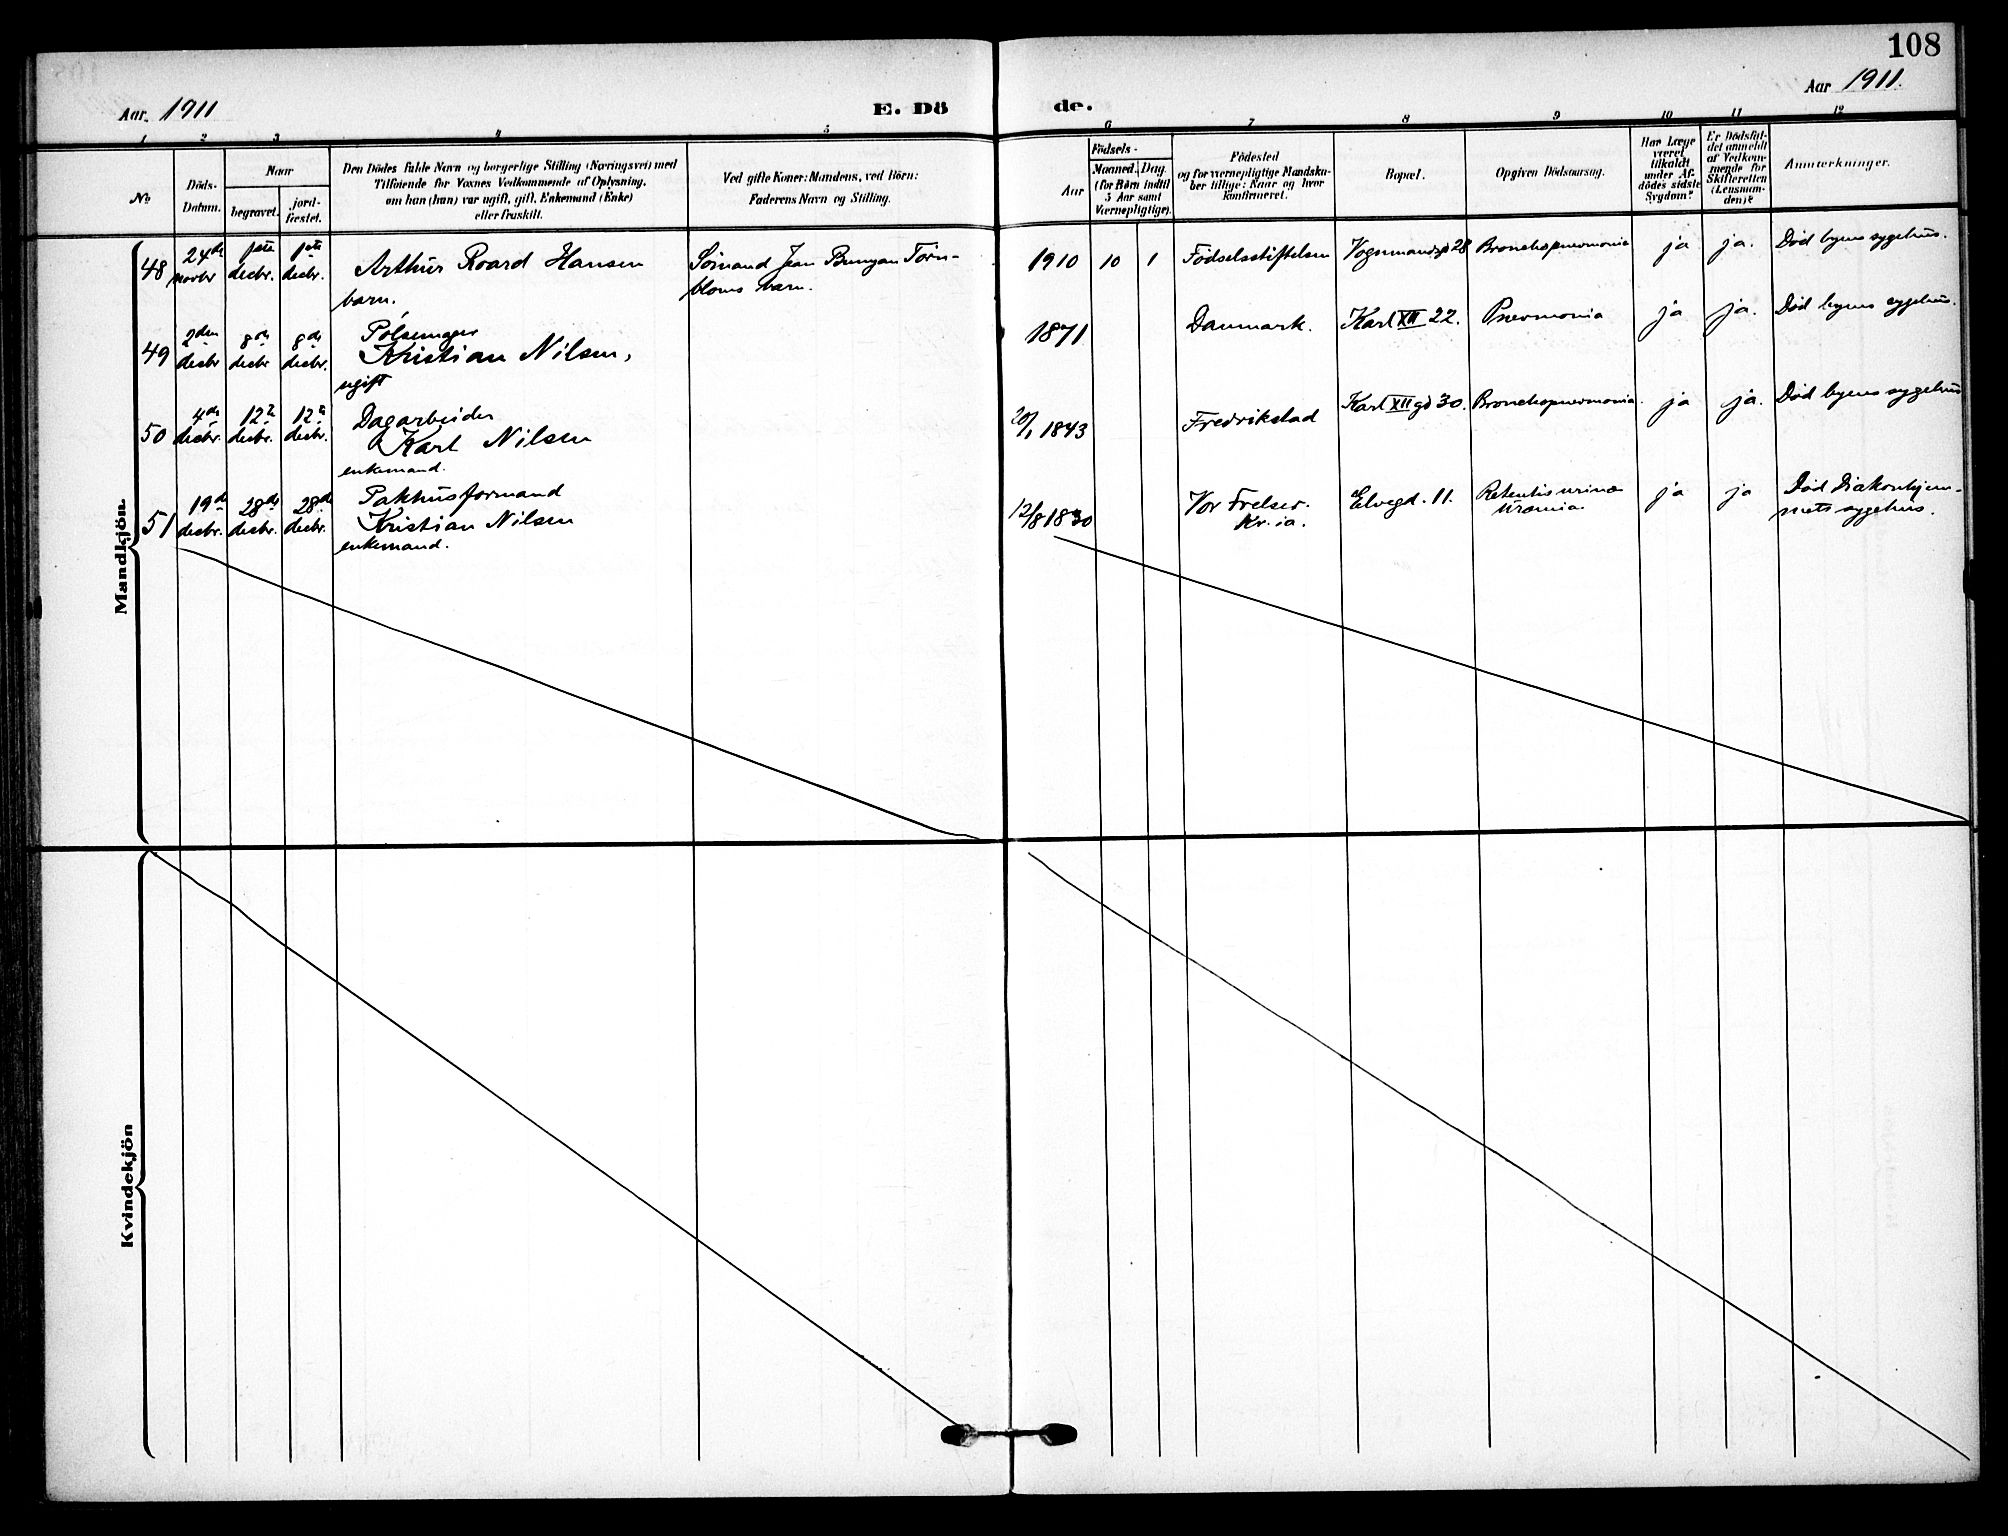 108
Aar 1911
E. Dö
de.
Aar 1911.
1 2 3 4 5 6 7 8 9 10 11 12
No
Döds-
Datum.
Naar
begravet.
jord-
fæstet.
Den Dödes fulde Navn og borgerlige Stilling (Næringsvei) med
Tilföiende for Voxnes Vedkommende af Oplysning,
om han (hun) var ugift, gift, Enkemand (Enke)
eller fraskilt.
Ved gifte Koner: Mandens, ved Börn:
Faderens Navn og Stilling.
Födsels-
Aar
Maaned. Dag
(for Börn indtil
5 Aar samt
Værnepligtige).
Födested
og for værnepligtige Mandska-
ber tillige: Naar og hvor
konfirmeret.
Bopæl.
Opgiven Dödsaarsag.
Har Læge
været
tilkaldt
under Af-
dödes sidste
Sygdom?
Er Dödsfal-
det anmeldt
af Vedkom-
mende for
Skifteretten
(Lensman-
den)?
Anmærkninger.
Mandkjön.
48 24de novbr 1ste decbr. 1ste decbr. Arthur Roard Hansen
barn.
Sømand Jean Bunyan Törn-
bloms barn.
1910 10 1 Födselsstiftelsen Vognmandsgd 28 Bronchopneumonia ja ja. Död byens sygehus.
49 2den decbr 8de decbr 8de decbr. Pølsemager
Kristian Nilsen,
ugift
1871 Danmark. Karl XII 22. Pnevmonia ja ja. Död byens sygehus.
50 4de decbr. 12te decbr. 12te decbr. Dagarbeider
Karl Nilsen
enkemand.
20/1 1843 Fredrikstad Karl XII gd 30. Bronchopnevmonia. ja ja. Död byens sygehus
51 19de decbr. 28de decbr. 28de decbr. Pakhusformand
Kristian Nilsen
enkemand.
12/8 1830 Vor Frelser.
Kr.ia.
Elvegd. 11. Retentio urinæ
Uræmia.
ja ja Död Diakonhjem-
mets sygehus.
Kvindekjön